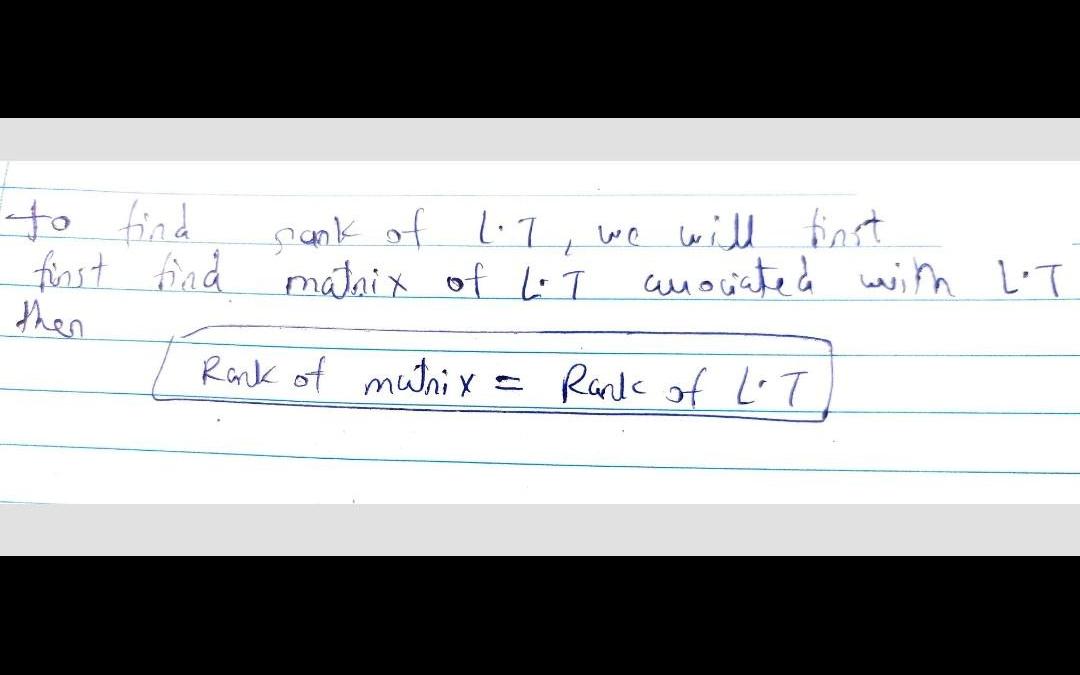 to find rank of L.T, we will first
first find matrix of L.T associated with L.T
then
Rank of matrix = Rank of L.T